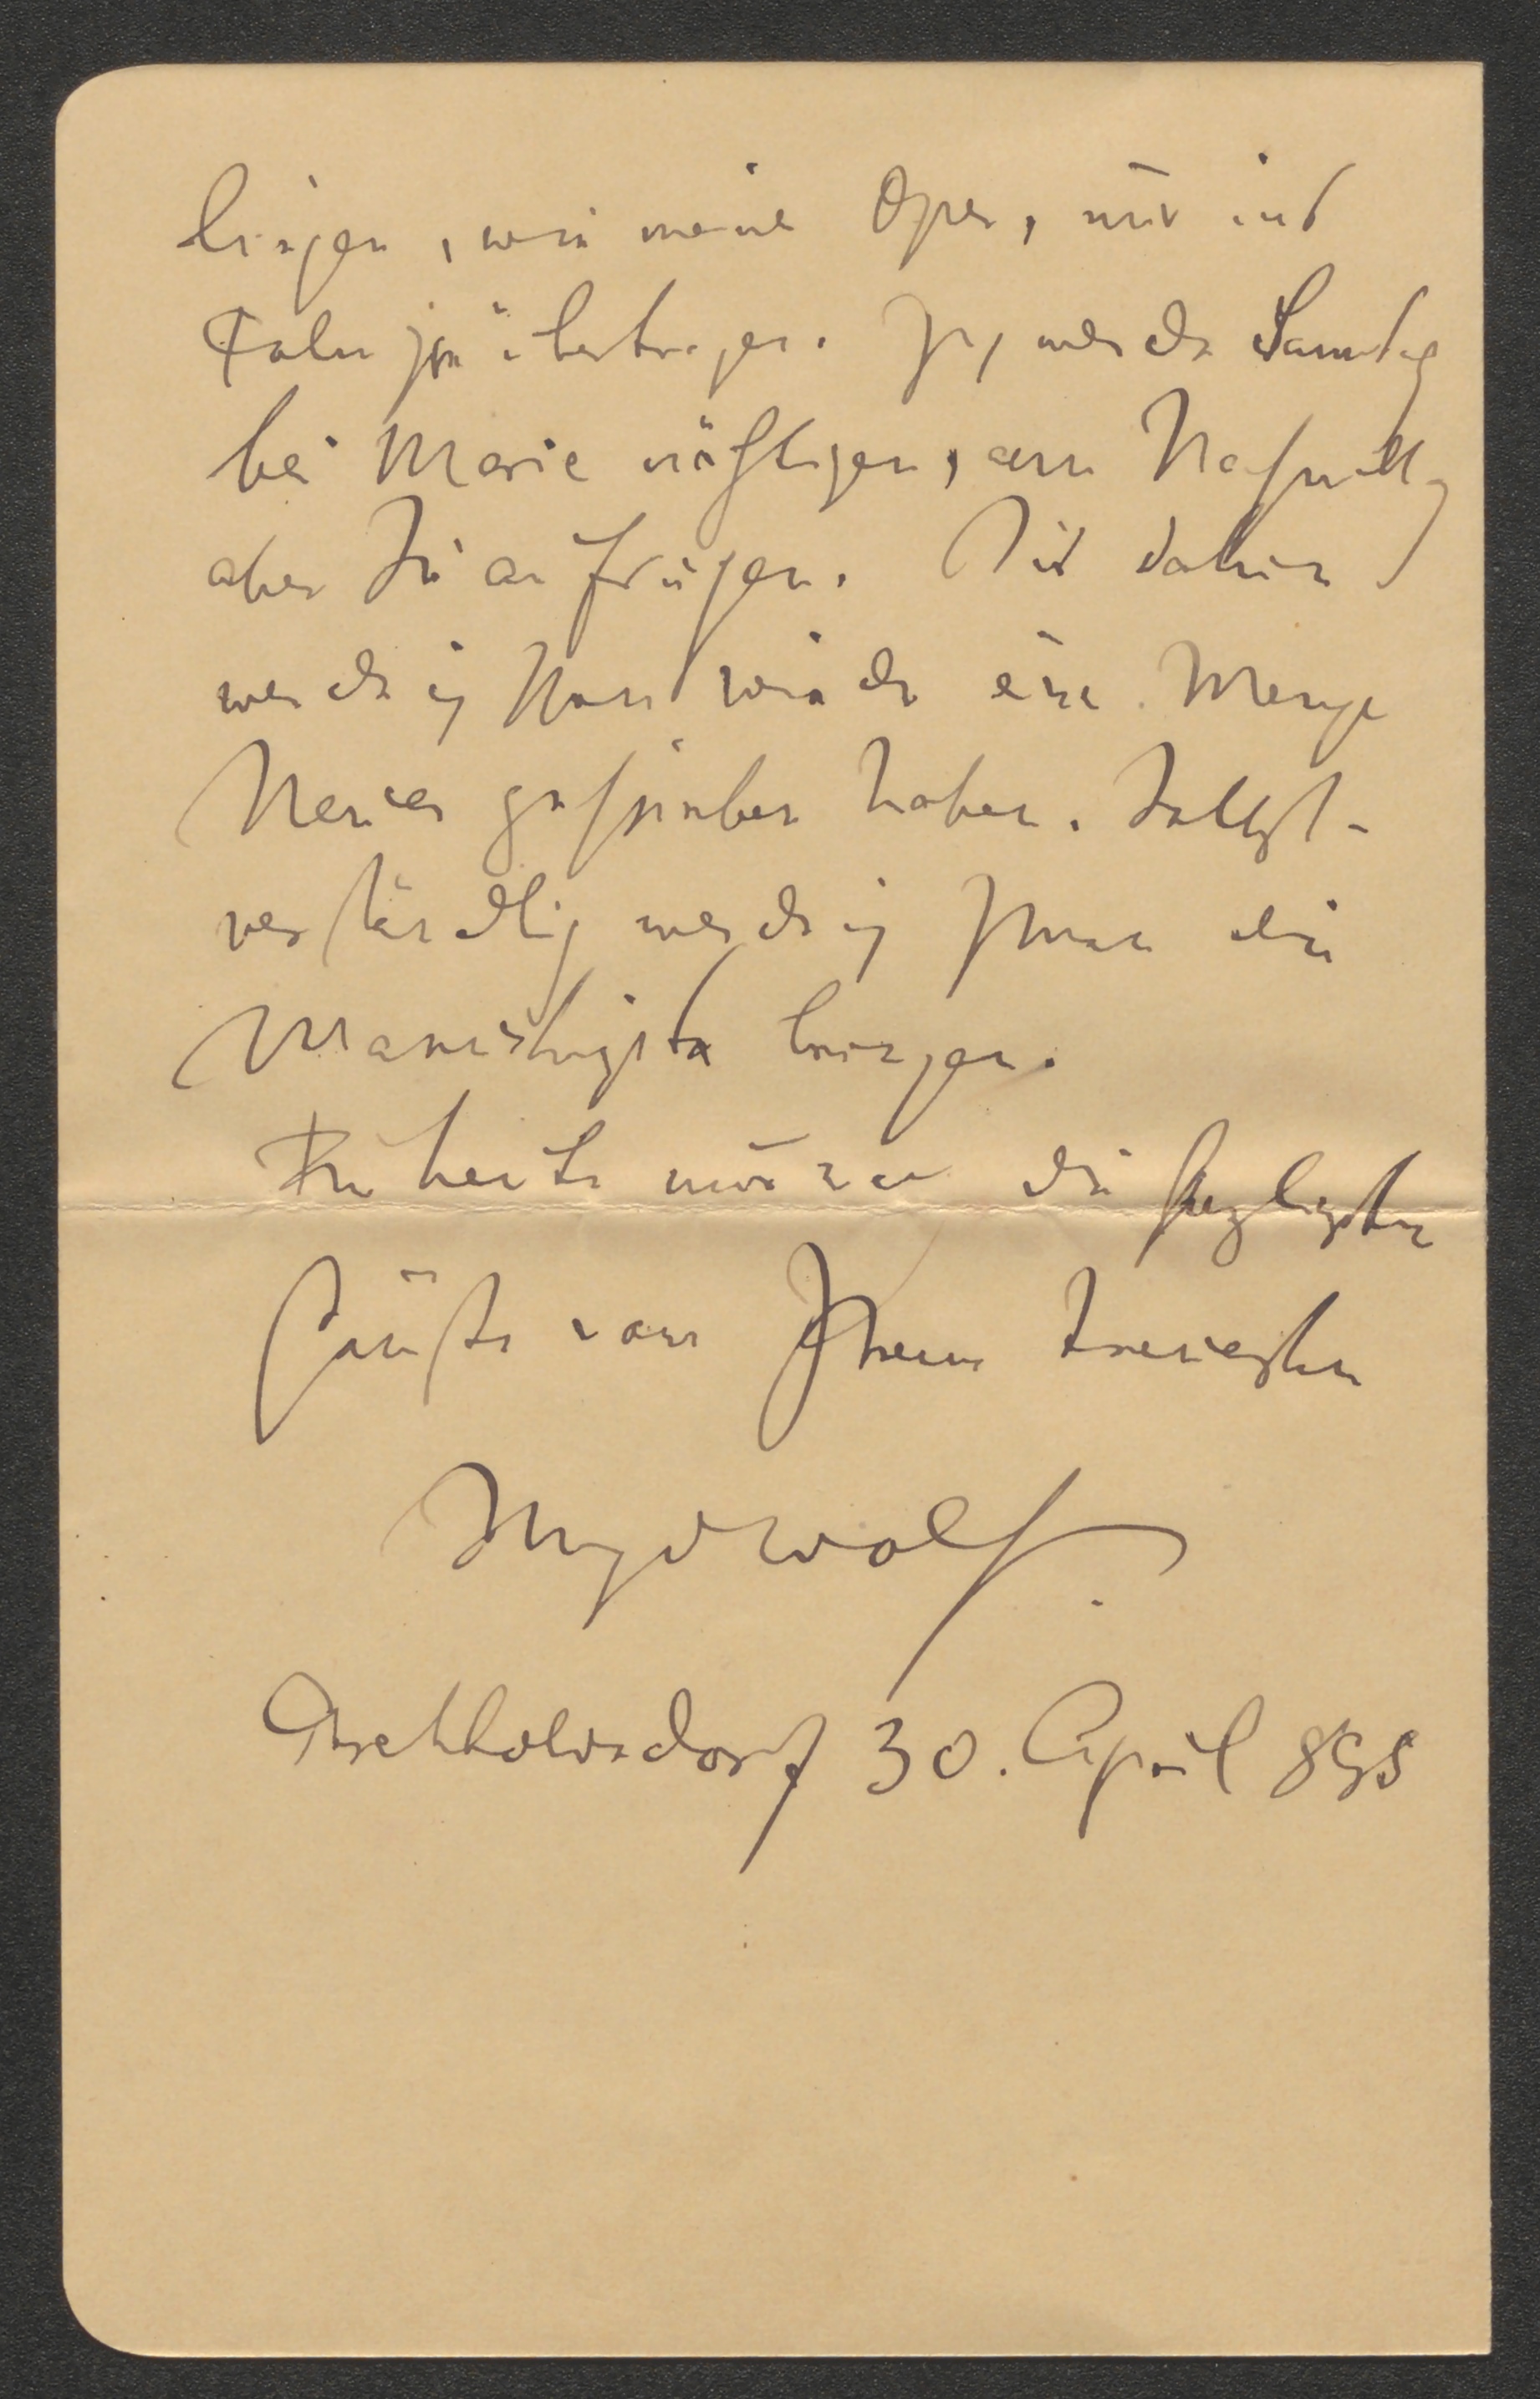 bringen, wie meine Oper, nur ins
zu übertragen. Ich werde Samstag
bei Marie nächtigen, am Nachmittg
aber Sie aufsuchen. Bis dahin
werde ich wieder eine Menge
Neues geschrieben haben. Selbst-
verständlich werde ich Ihnen die
Manuskripte bringen.
Für heute nur die herzlichsten
Grüße von Ihrem treuesten
Hugo Wolf.
Perchtoldsdorf 30. April 895